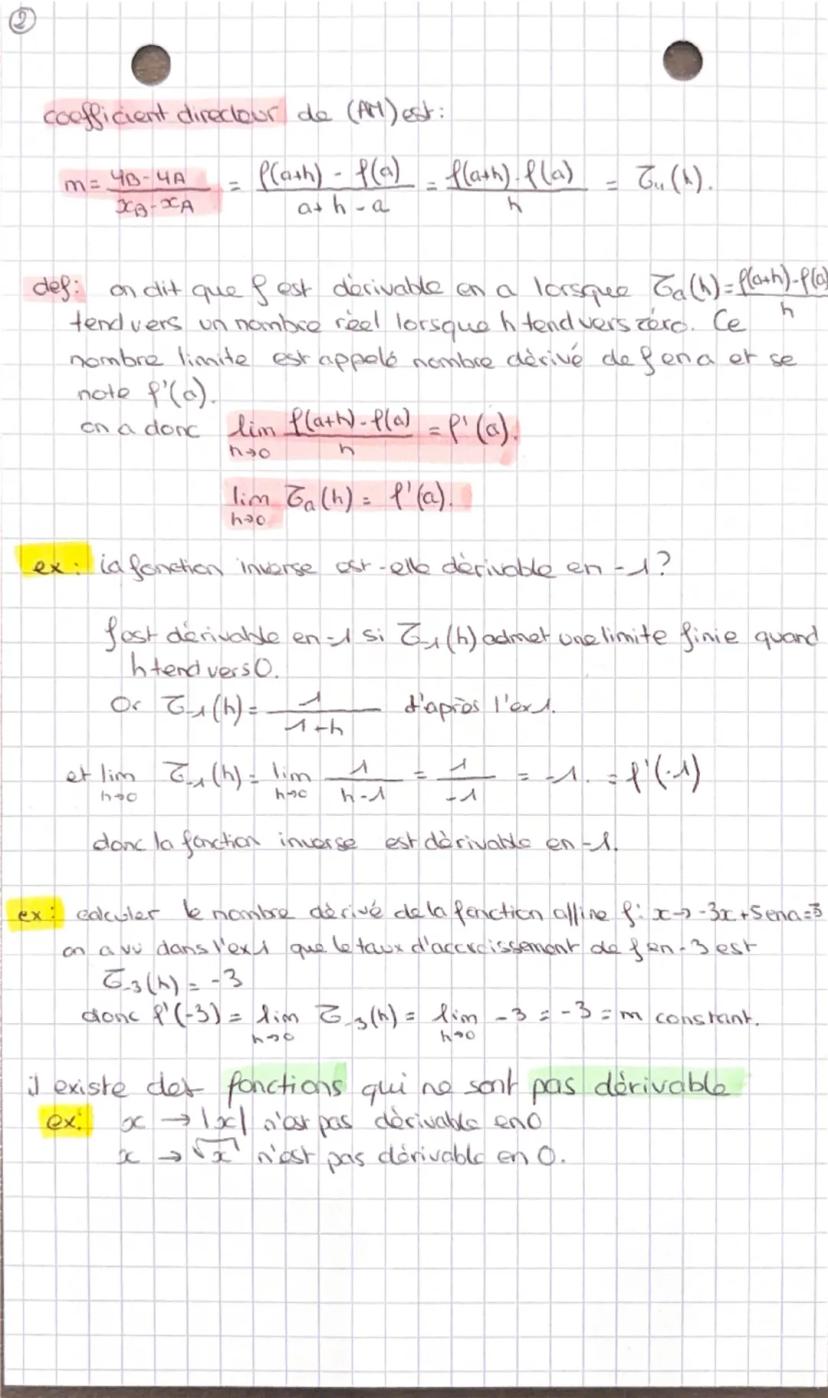 ②
coefficient directeur de (AM) est :
m = yB - yA / xB - xA = f(a+h) - f(a) / a + h - a = f(a+h) - f(a) / h = τa(h).
def : on dit que f est dérivable en a lorsque τa(h) = f(a+h) - f(a) / h
tend vers un nombre réel lorsque h tend vers zéro. Ce
nombre limite est appelé nombre dérivé de f en a et se
note f'(a).
on a donc lim h→0 f(a+h) - f(a) / h = f'(a).
lim h→0 τa(h) = f'(a).
ex : la fonction inverse est-elle dérivable en -1 ?
f est dérivable en -1 si τ-1(h) admet une limite finie quand
h tend vers 0.
Or τ-1(h) = 1 / 1+h d'après l'ex1.
et lim h→0 τ-1(h) = lim h→0 1 / h-1 = 1 / -1 = -1. = f'(-1)
donc la fonction inverse est dérivable en -1.
ex : calculer le nombre dérivé de la fonction affine f : x → -3x + 5 en a = -3
on a vu dans l'ex1 que le taux d'accrcissement de f en -3 est
τ-3(h) = -3
donc f'(-3) = lim h→0 τ-3(h) = lim h→0 -3 = -3 = m constant.
il existe des fonctions qui ne sont pas dérivable
ex : x → |x| n'est pas dérivable en 0
x → √x n'est pas dérivable en 0.